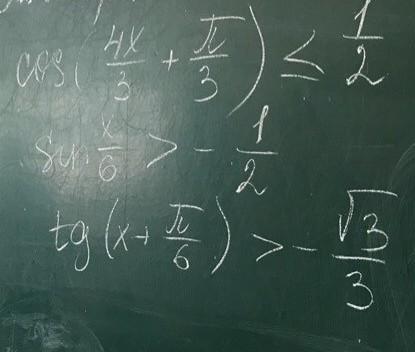 cos(4x/3 + π/3) ≤ 1/2
sin x/6 > - 1/2
tg(x + π/6) > - √3/3